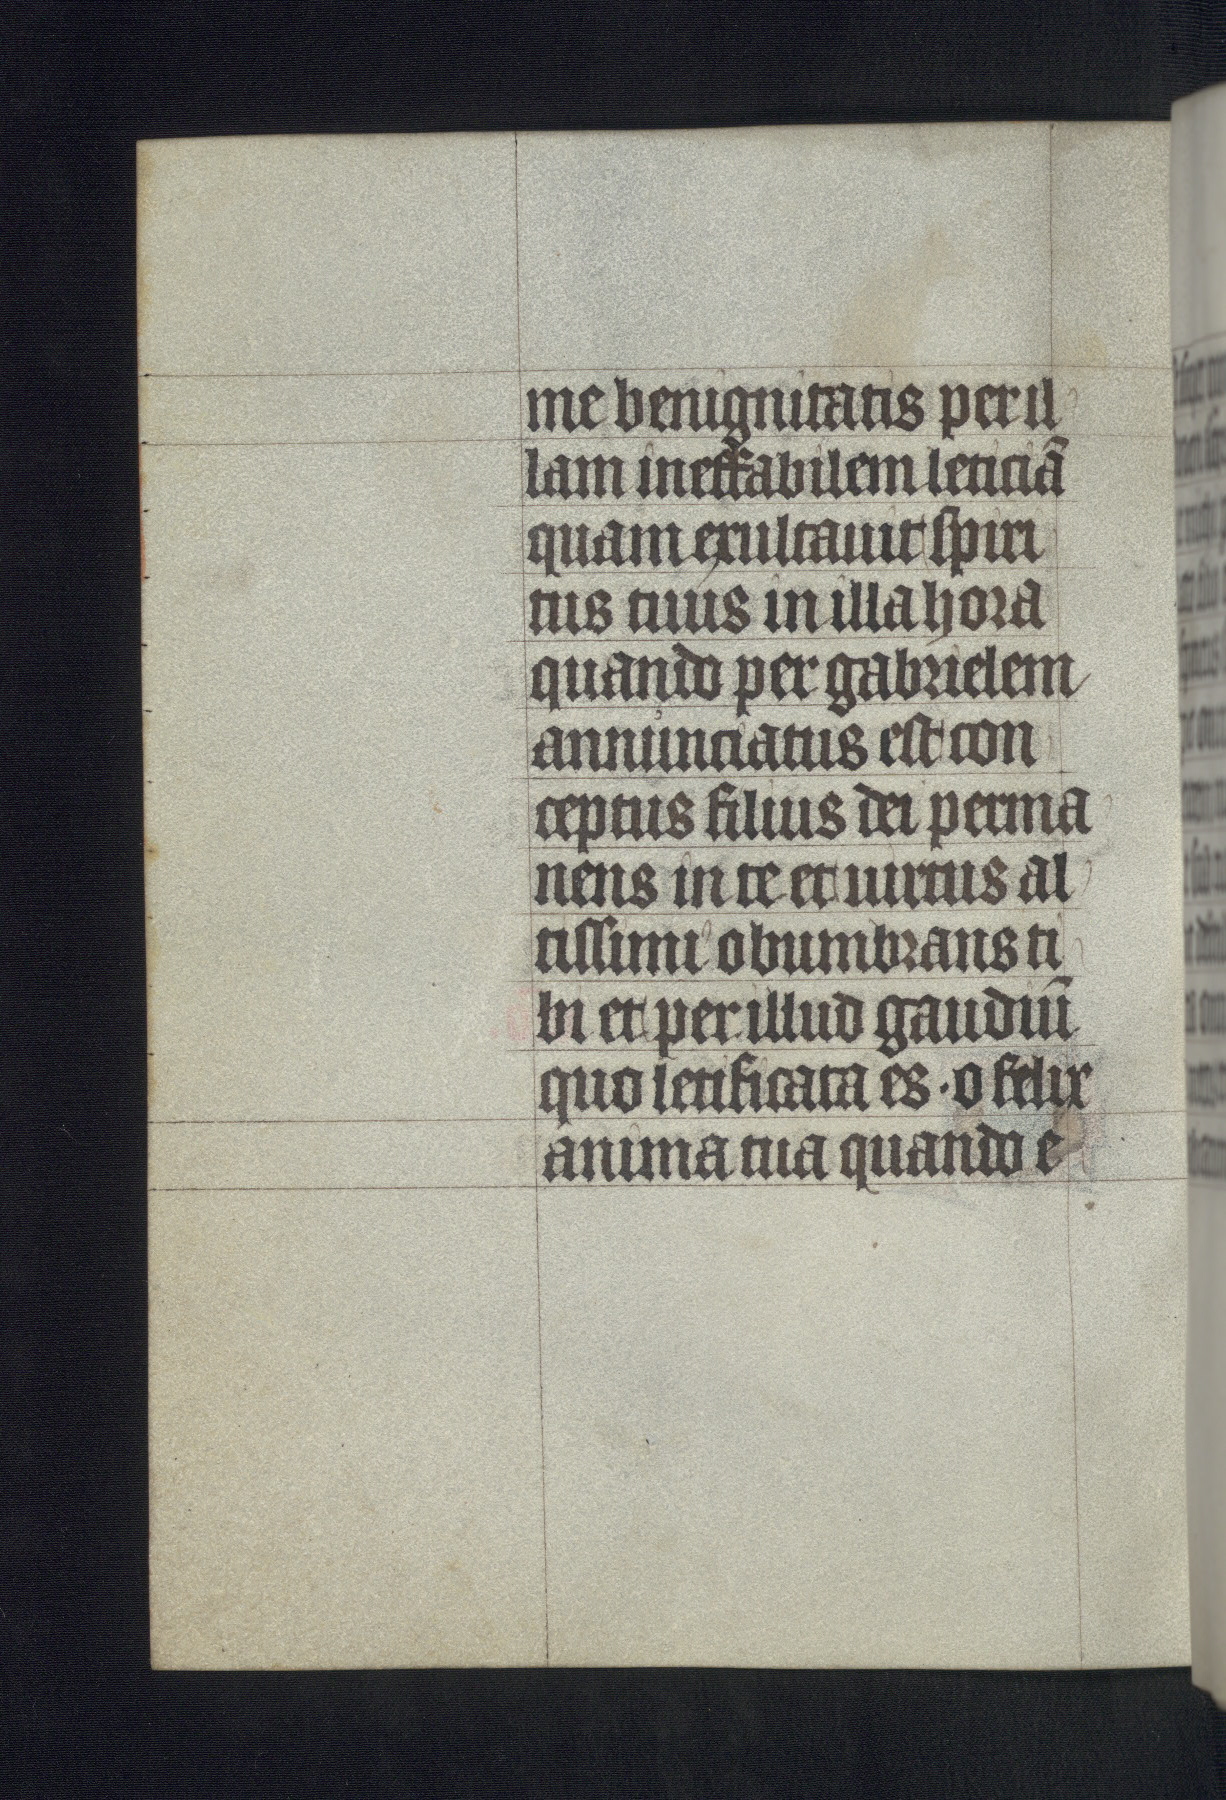 me benignitatis per il
lam ineffabilem leticiā
quam exultauit spiri
tus tuus in illa hora
quando per gabrielem
annunciatus est con
ceptus filius dei perma
nens in te et uirtus al
tissimi obumbrans ti
bi et per illud gaudiū
quo letificata es · o felix
anima tua quando e